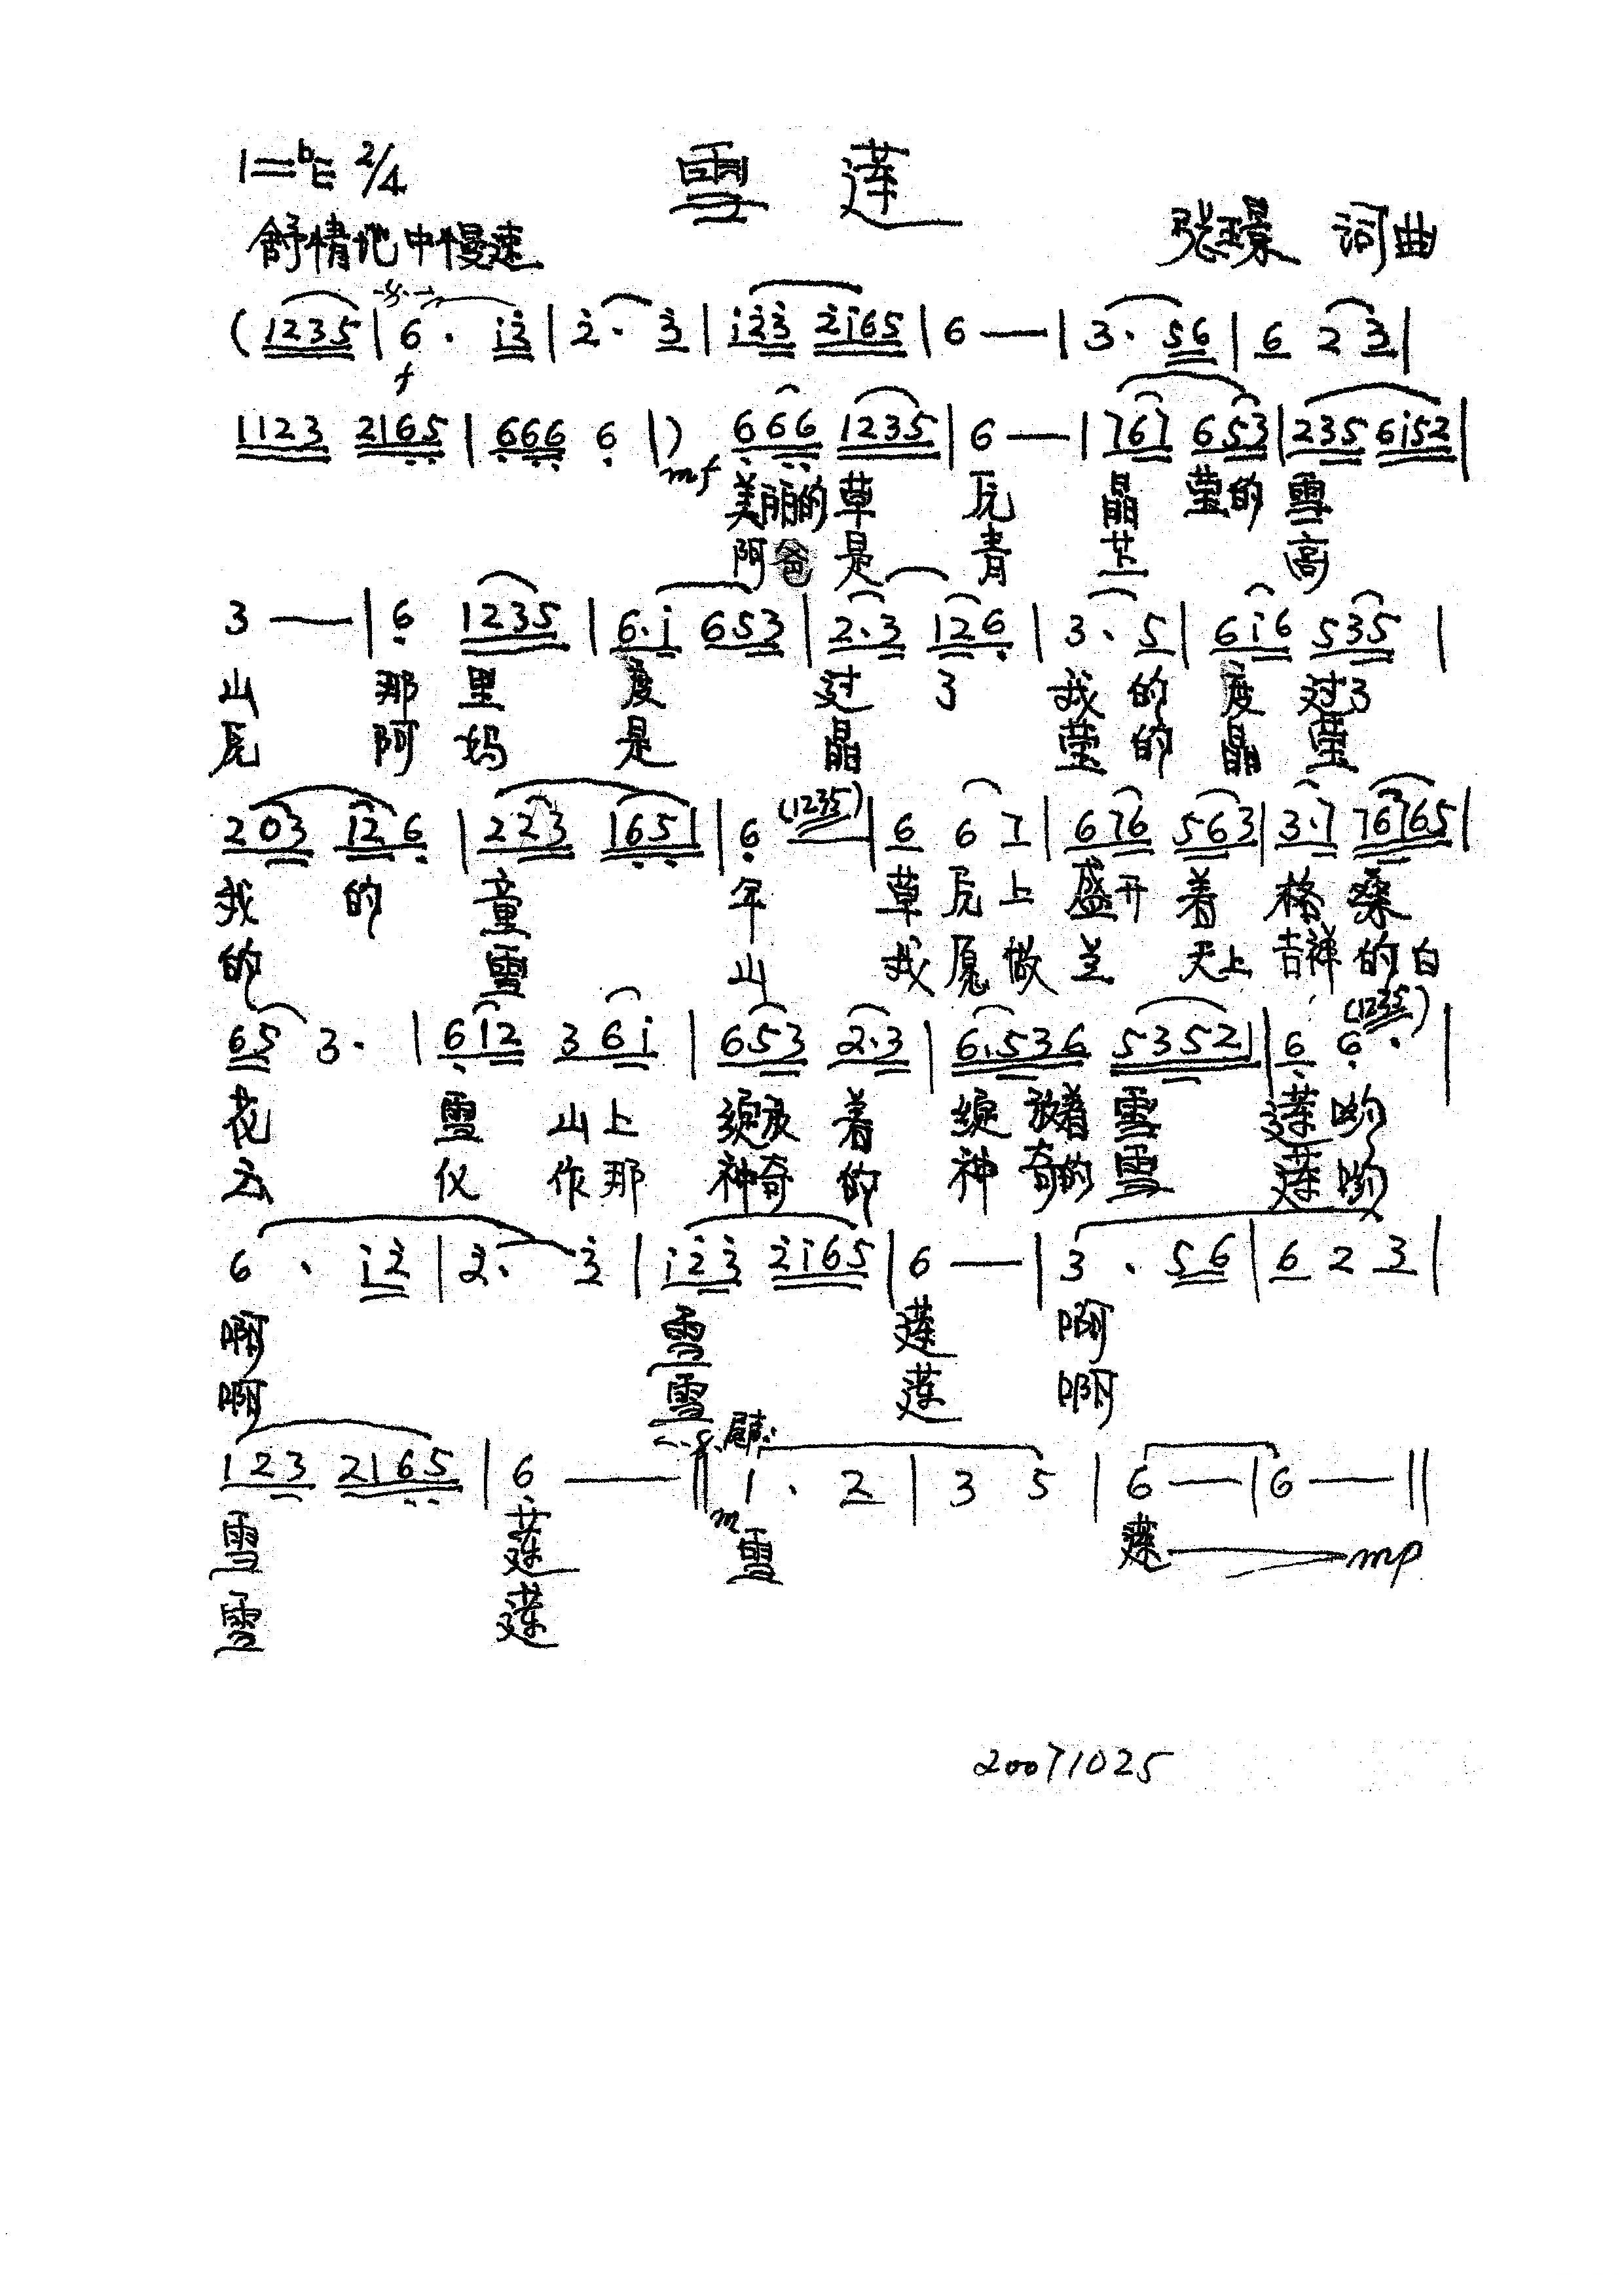 1=ᵇE 2/4 雪 莲
舒情地中慢速 张 词曲
(1235|6· i2|2· 3|i23 2i65|6 —|3· 56|6 2 3|
f
1123 2165|666 6|) 666 1235|6 —|767 653|235 6i52|
mf 美丽的草 原 晶 莹的 雪
阿爸是 青 芷 高
3 —|6 1235|6·i 653|2·3 126|3· 5|6i6 535|
山 那 里 度 过 了 我 的 度 过了
原 阿 妈 是 晶 莹 的 晶 莹
203 126|223 1651|6 (1235)|6 6 7|676 563|3·7 76765|
我 的 童 年 草 原 上 盛开 着 格 桑
的 雪 山 我 愿 做 主 天上 吉祥 的 白
65 3·|612 3 6i|653 2·3|6·536 53521|6 6· (1235)|
花 雪 山上 绽放 着 绽 放着 雪 莲 哟
云 仪 作那 神奇 的 神 奇的 雪 莲 哟
6 · i2|2· 3|i23 2i65|6 —|3 · 56|6 2 3|
啊 雪 莲 啊
啊 雪 莲 啊
123 2165|6 —‖1 · 2|3 5|6 —|6 —‖
雪 莲 m 雪 莲 mp
雪 莲
20071025